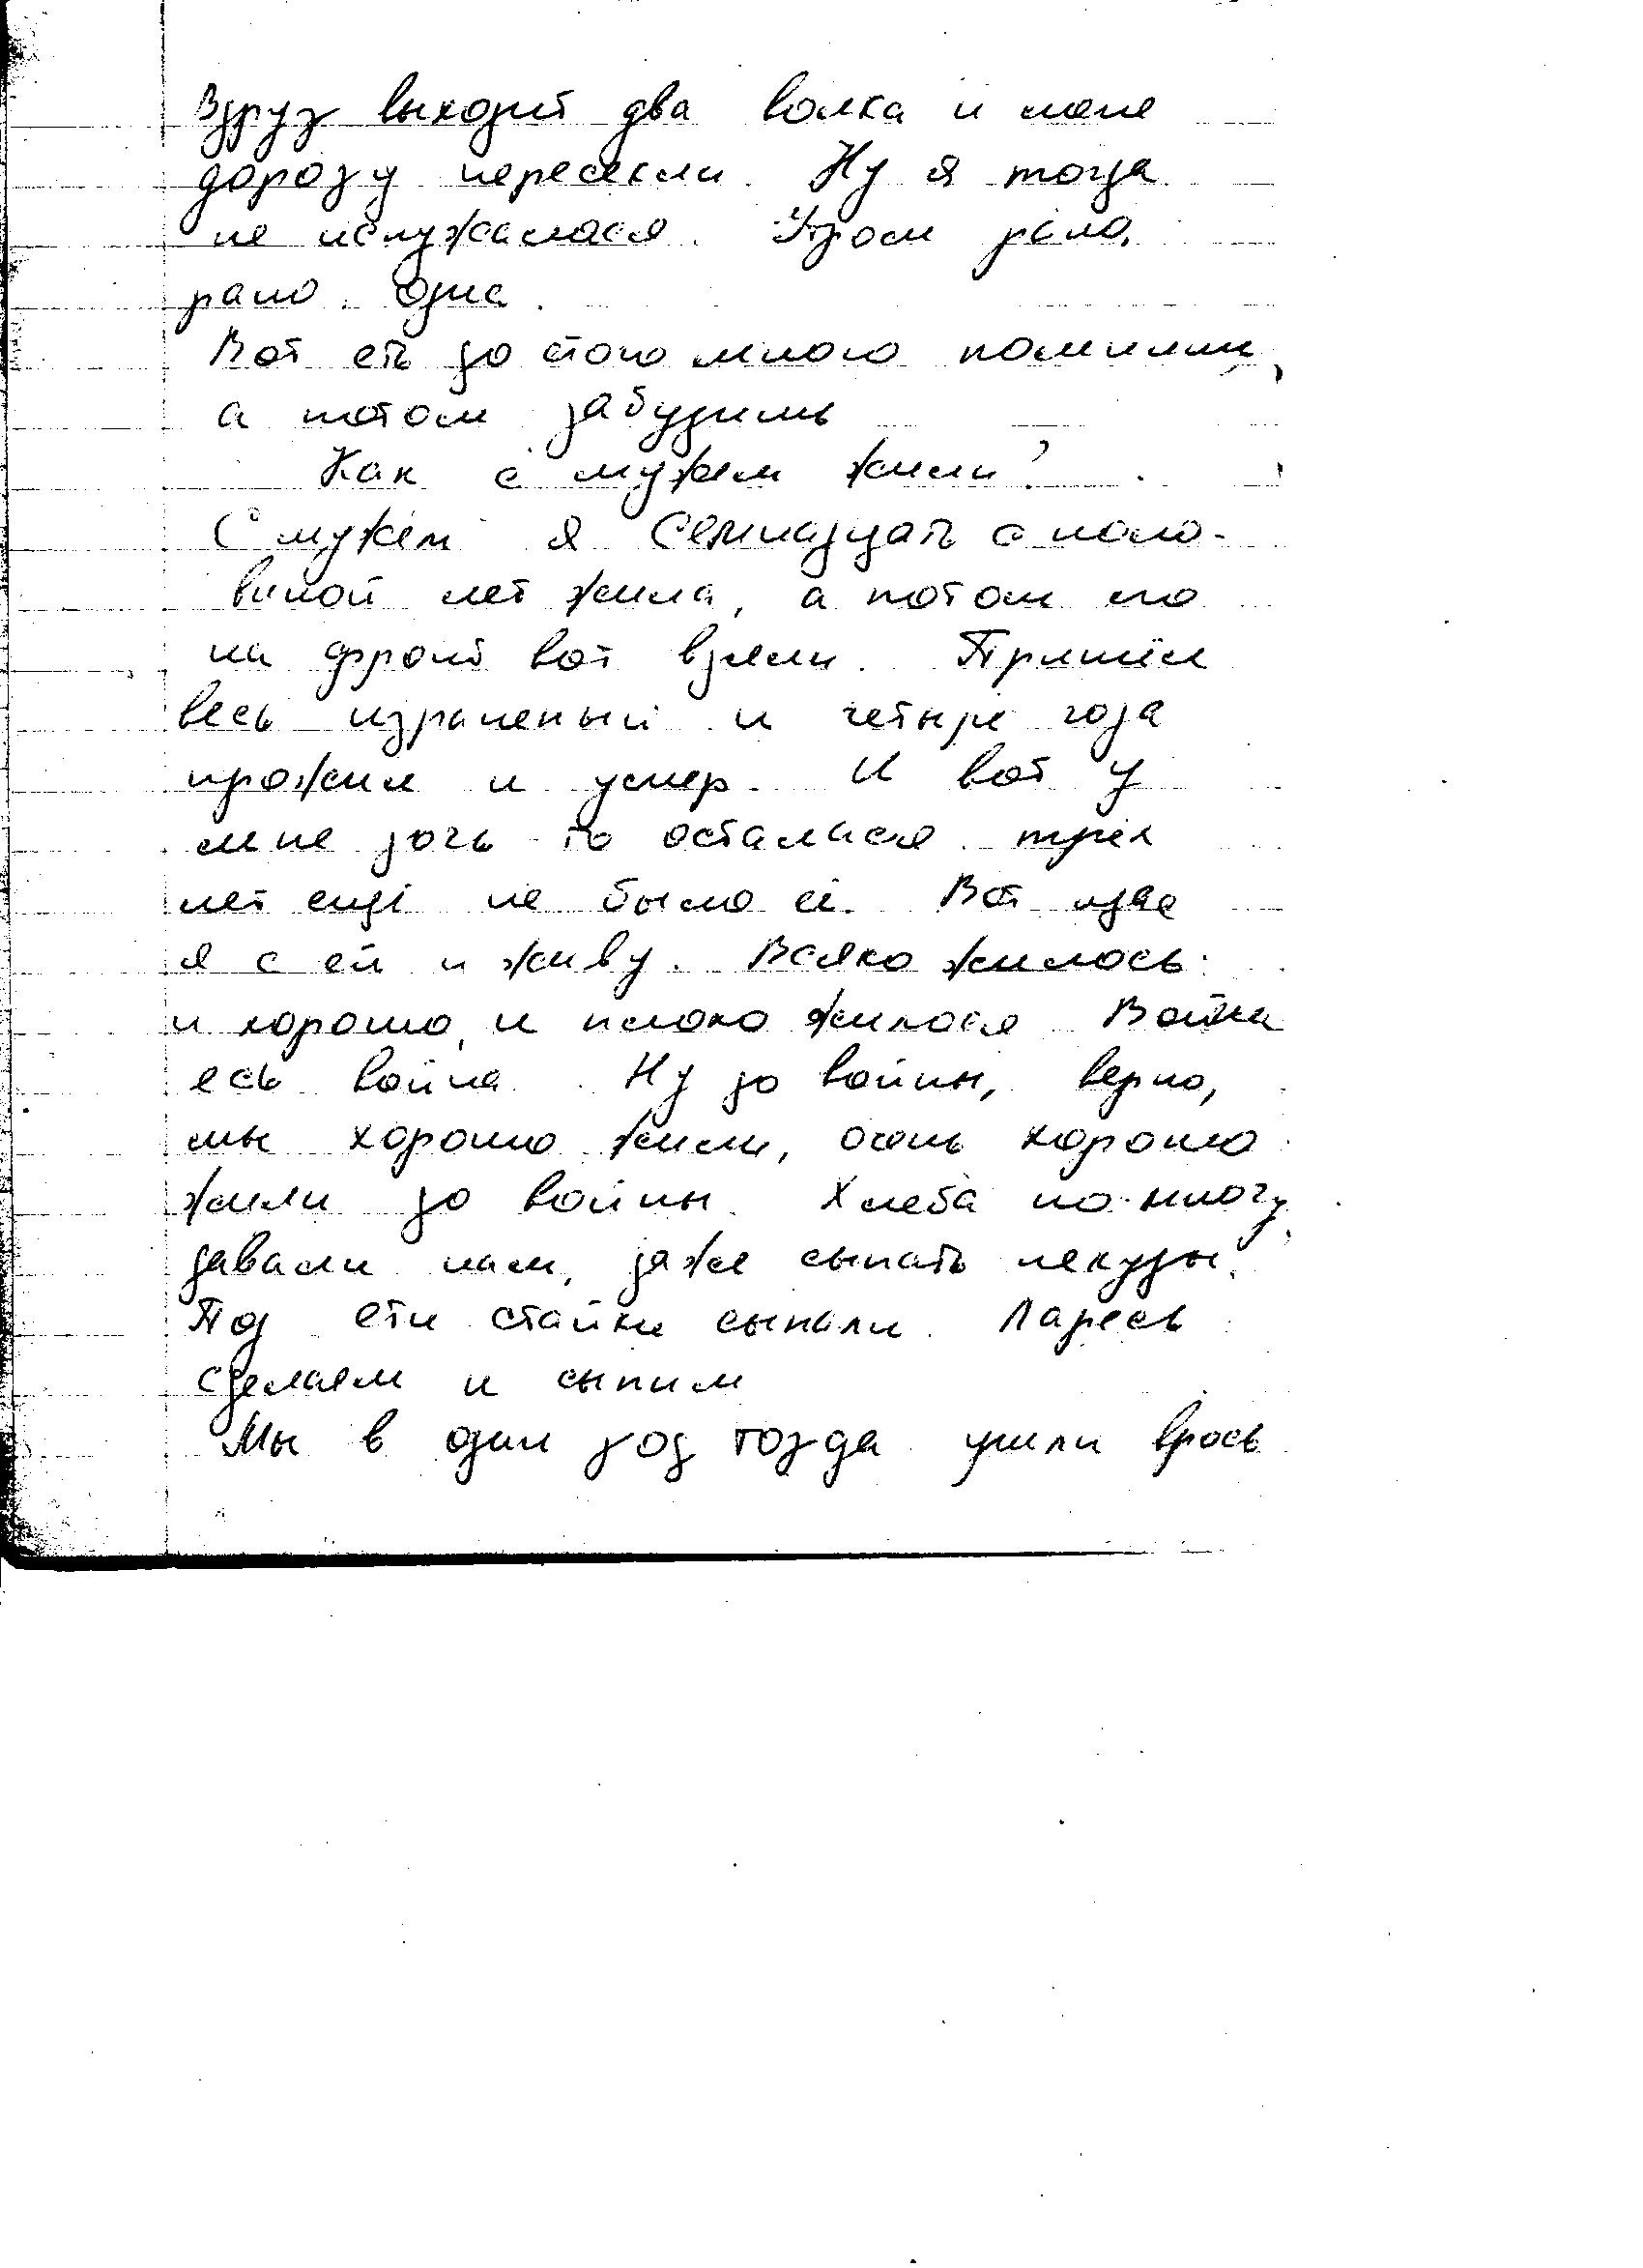 Вдруг выходит два волка и мене
дорогу пересекли. Ну я тогда
не испужалася. Утром рано,
рано. Одна.
Вот еть до етого много помнишь,
а потом забудишь
Как с мужем жили?
С мужем я семнадцать с поло-
виной лет жила, а потом его
на фронт вот взяли. Пришёл
весь израненый и четыре года
прожил и умер. И вот у
мине дочь-то осталися трёх
лет ещё не было ей. Вот
я с ей и живу. Всяко жилось:
и хорошо, и плохо жилося Война
есь война. Ну до войны, верно,
мы хорошо жили, очень хорошо
жили до войны. Хлеба по-многу
давали нам, даже сыпать некуды.
Под ети стайки сыпали. Ларесь
сделаем и сыпим
Мы в один год тогда ушли врось